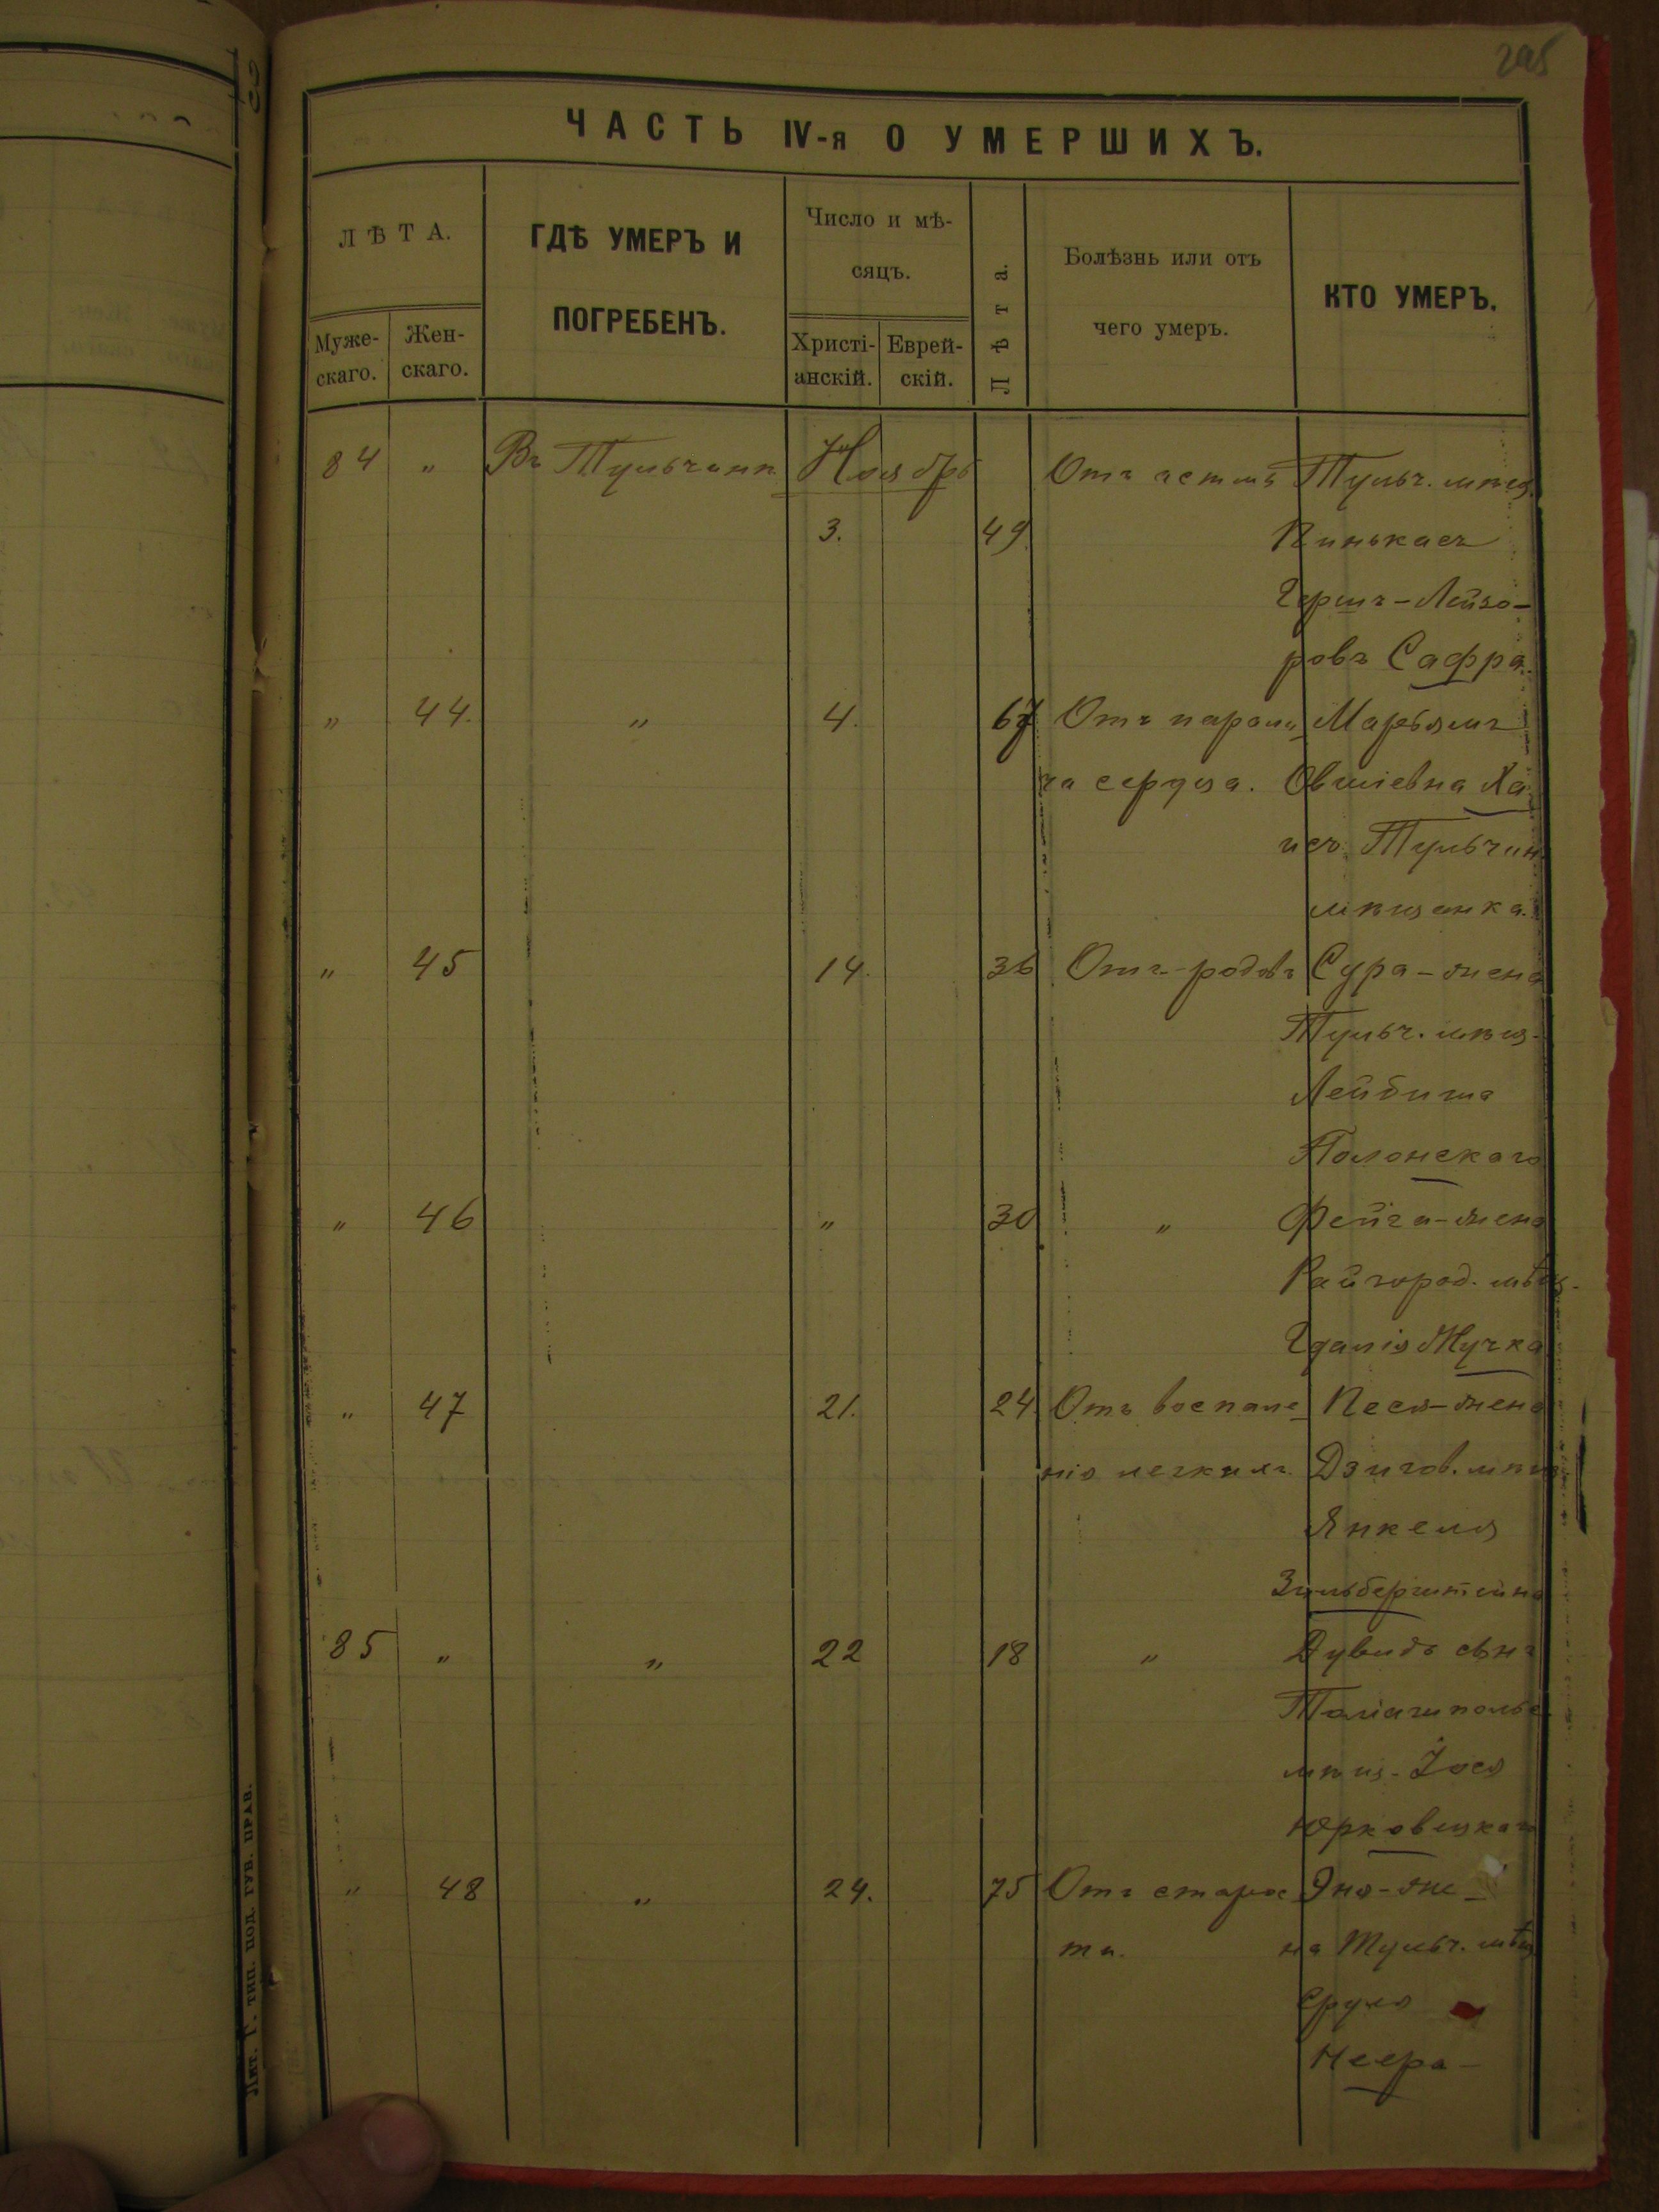 295
ЧАСТЬ IV-я О УМЕРШИХЪ.
ЛѢТА.
Муже-
скаго.
Жен-
скаго.
ГДѢ УМЕРЪ И
ПОГРЕБЕНЪ.
Число и мѣ-
сяцъ.
Христі-
анскій.
Еврей-
скій.
Лѣта.
Болѣзнь или отъ
чего умеръ.
КТО УМЕРЪ.
84 " Въ Тульчинѣ Ноябрь Отъ Тульч. мѣщ.
3. 49 Пинькасъ
Гершъ-Лейзо-
ровъ Сафра.
" 44. " 4. 67 Отъ Марьямъ
сердца. Овшіевна Ха
Тульчин.
мѣщанка.
" 45 14. 36 Отъ родовъ Сура-жена
Тульч. мѣщ.
Лейбиша
Полонскаго
" 46 " 30 " Фейга-жена
Райгород. мѣщ.
Жучка
" 47 21. 24 Отъ воспале- Песя-жена
нія легкихъ. Дзигов. мѣщ.
Янкеля
Зильберштейна
85 " " 22 18 " Дувидъ сынъ
мѣщ. Іося
Юрковецкаго
" 48 " 24. 75 Отъ старос Эня-же-
ти. на Тульч. мѣщ
Сруля
Неера-
Лит. Г. тип. Под. Губ. Прав.